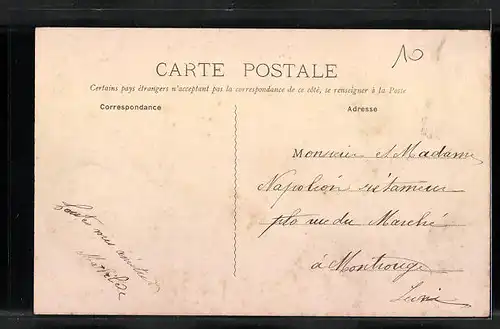 10
CARTE POSTALE
Certains pays étrangers n'acceptant pas la correspondance de ce côté, se renseigner à la Poste
Correspondance
Adresse
Monsieur et Madame
Napoléon rétameur
rue du Marché
à Montrouge
Seine